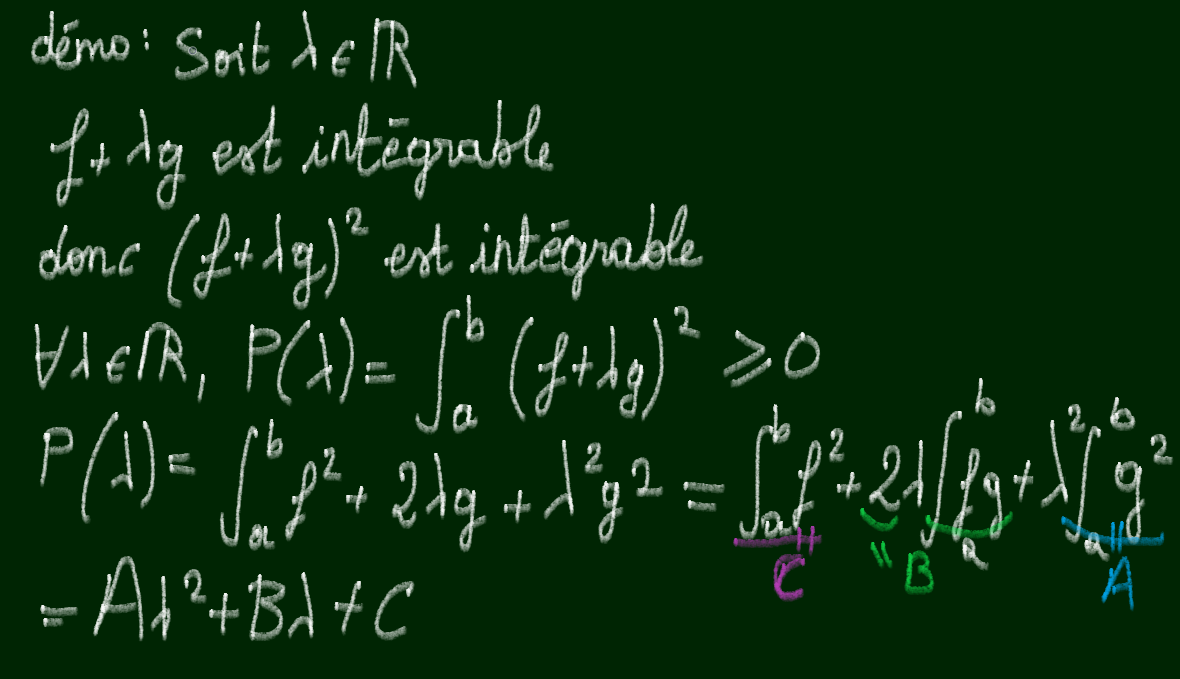 démo: Soit λ ∈ ℝ
f + λg est intégrable
donc (f + λg)² est intégrable
∀λ ∈ ℝ, P(λ) = ∫_a^b (f + λg)² ⩾ 0
P(λ) = ∫_a^b f² + 2λg + λ²g² = ∫_a^b f² + 2λ ∫_a^b fg + λ² ∫_a^b g²
= C = B = A
= Aλ² + Bλ + C